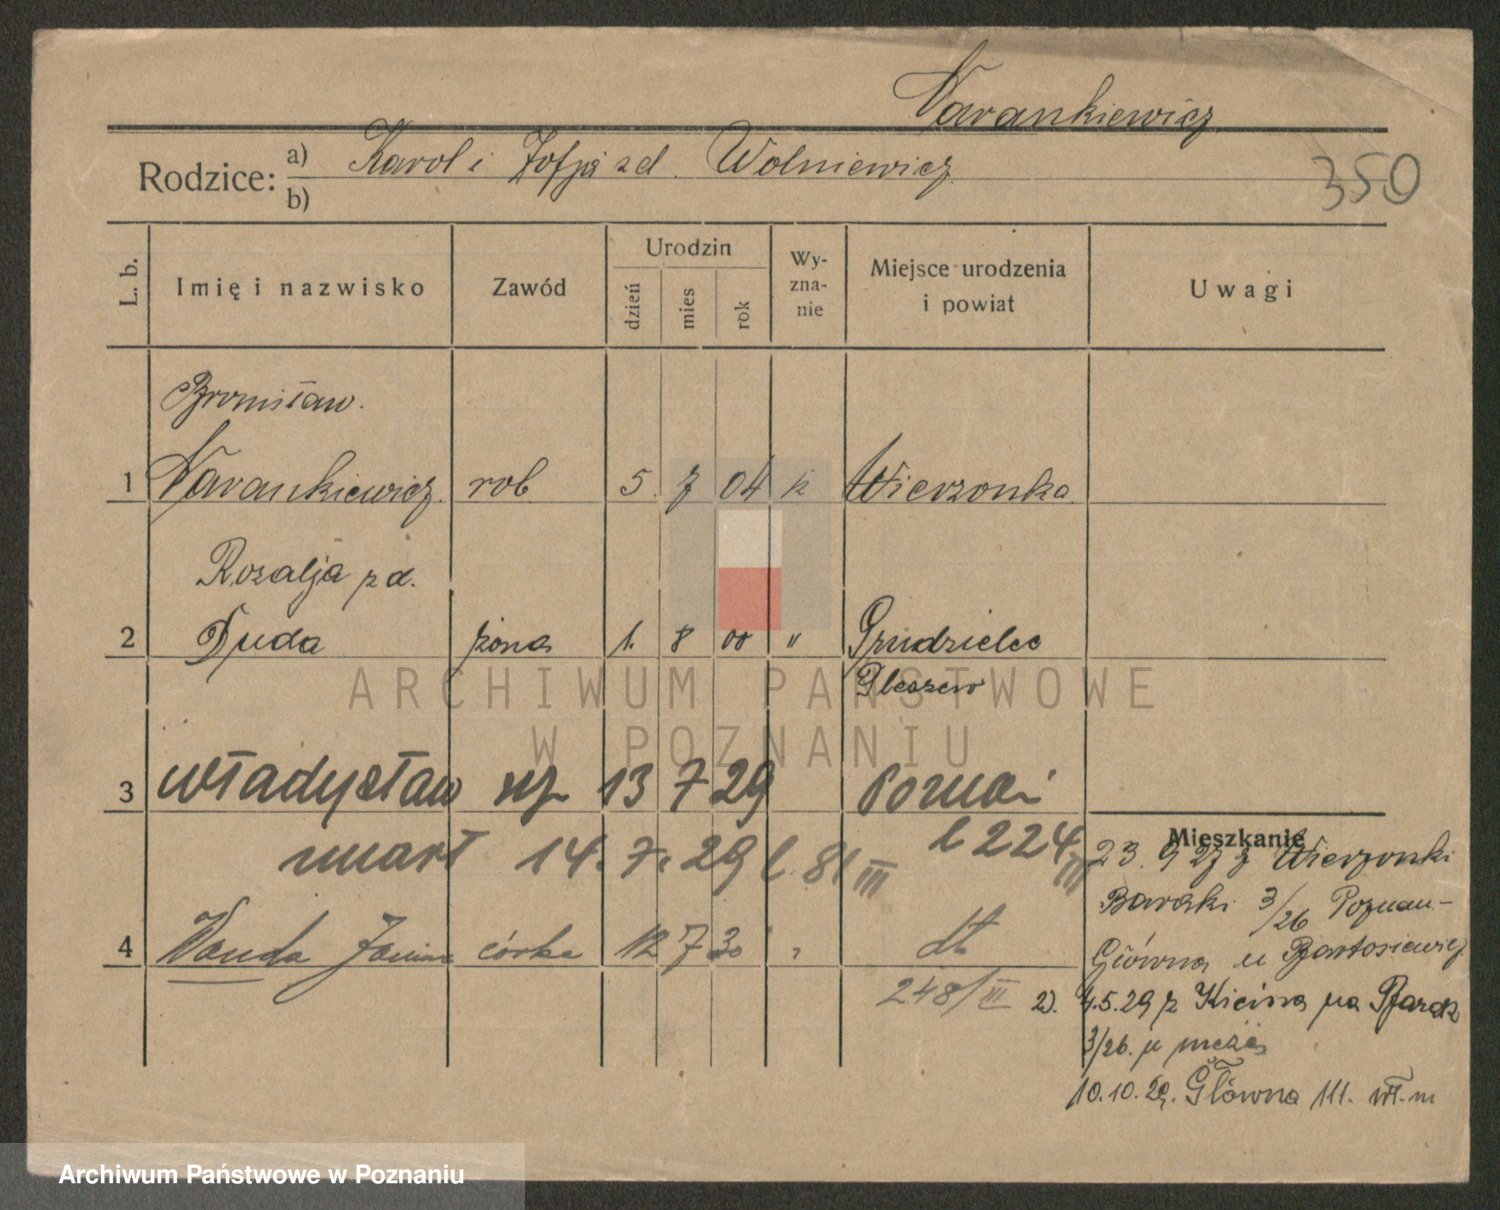 Narankiewicz
Rodzice: a) Karol i Zofja z d. Wolniewicz
b)
350
L. b. Imię i nazwisko Zawód Urodzin dzień mies rok Wy-zna-nie Miejsce urodzenia i powiat Uwagi
Bronisław.
1 Narankiewicz rob. 5. 7 04 k Wierzonka
Rozalja z d.
2 Duda żona 1. 8 00 " Grudzielec
Pleszew
ARCHIWUM PAŃSTWOWE
W POZNANIU
3 Władysław 13 7 29 Poznań
l 224 III
umarł 14. 7. 29 l. 81 III
Mieszkanie
23. 9 27 z Wierzonki
Barski 3/26 Poznań-
Główna u Bartosiewicz
4 Wanda Janina córka 12 7 30 " dt
248/III
2). 4.5.29 z Kicina na
3/26. u męża
10.10.29. Główna 111.
Archiwum Państwowe w Poznaniu